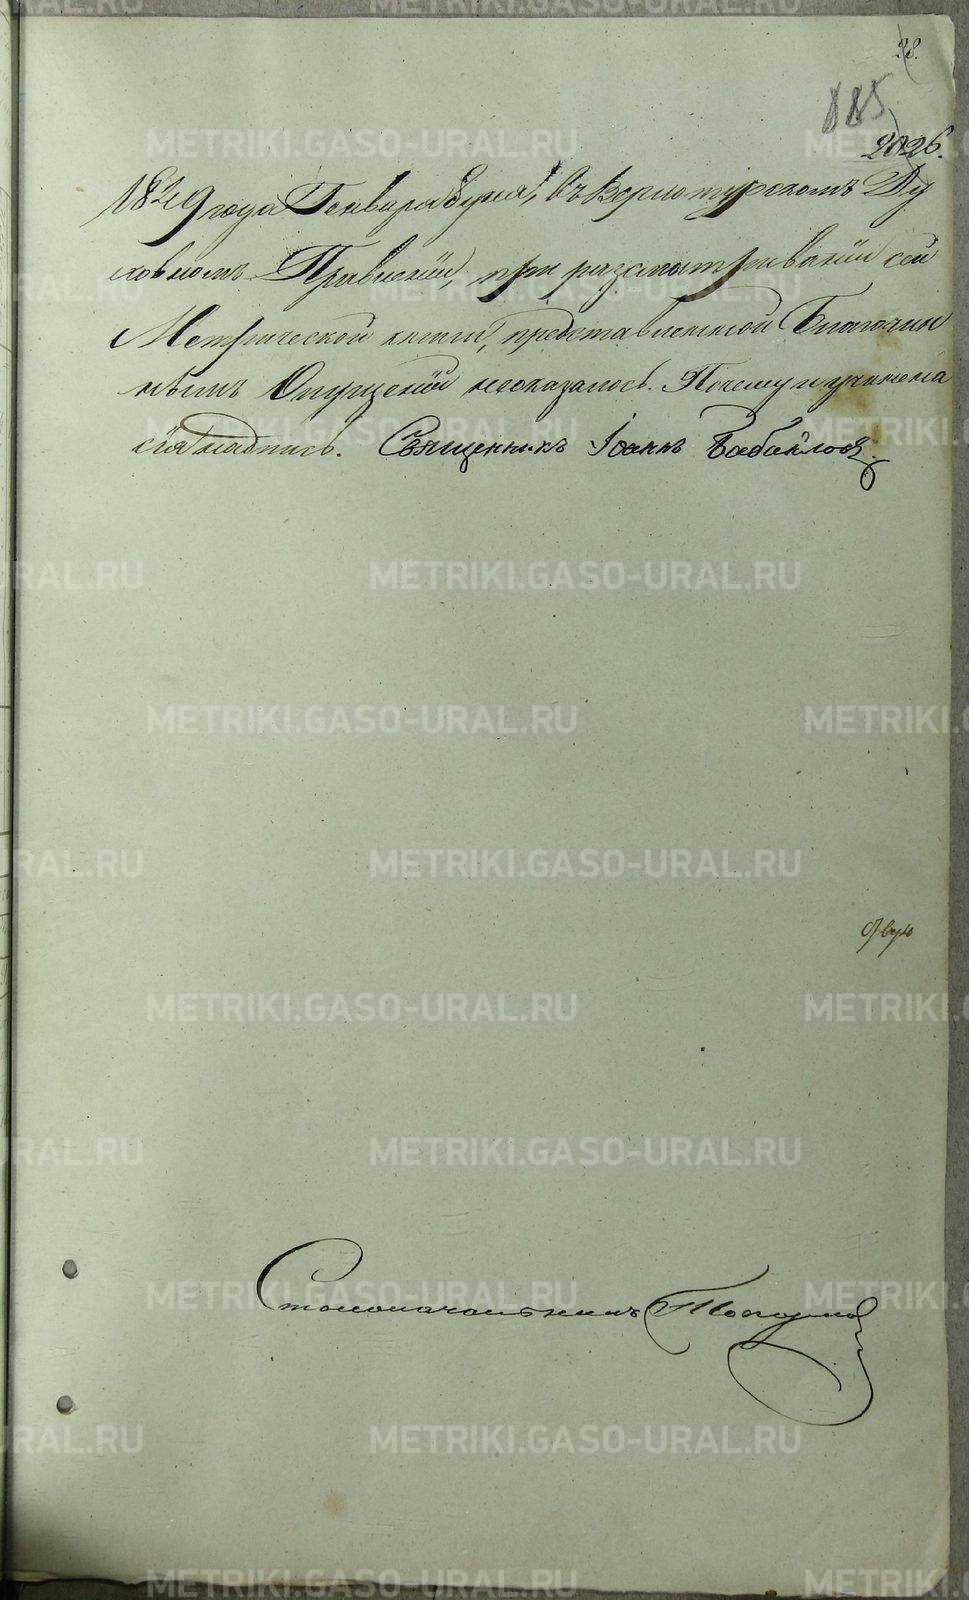 28.
885
2026.
1829 года Генваря 8 дня, въ Верхотурскомъ Ду
ховномъ Правленіи, при разсматриваніи сей
Метрической книги, представленной Благочин
нымъ Опущеній неоказалось. Почему и учинена
сія надпись. Священникъ Іоаннъ Бабайловъ.
Столоначальникъ
METRIKI.GASO-URAL.RU